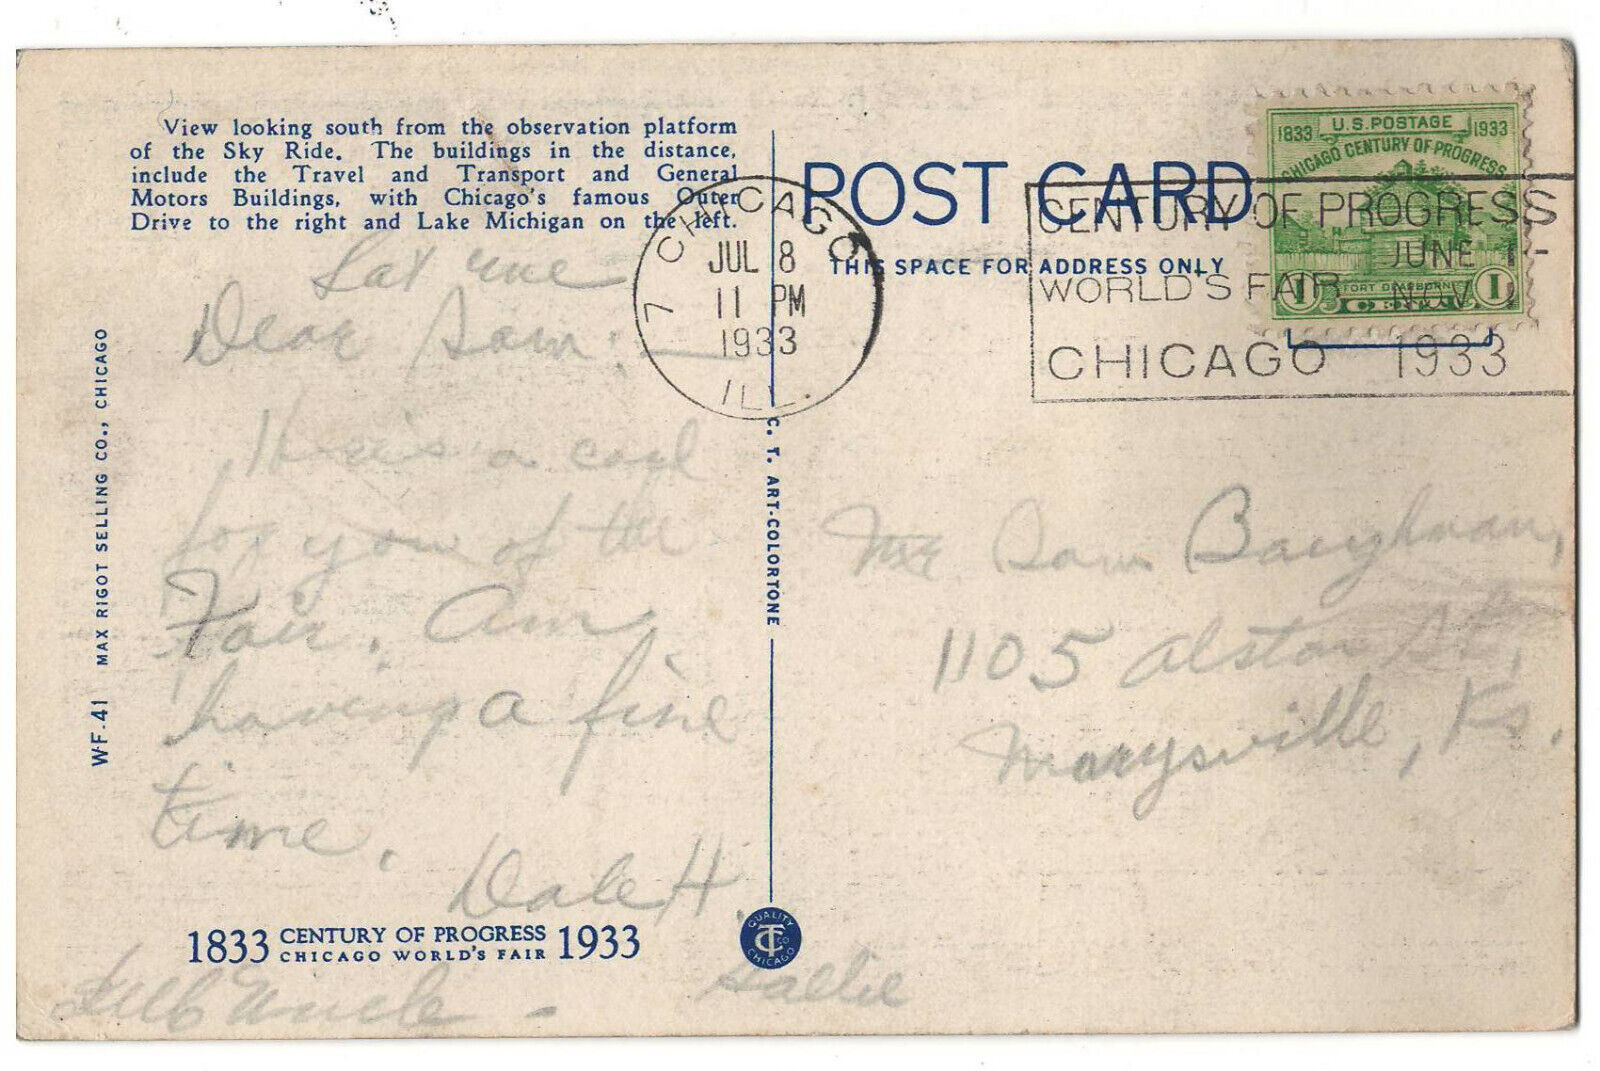 View looking south from the observation platform
of the Sky Ride. The buildings in the distance,
include the Travel and Transport and General
Motors Buildings, with Chicago's famous Outer
Drive to the right and Lake Michigan on the left.
Sat eve
Dear Sam: —
Here's a card
for you of the
Fair. Am
having a fine
time.
Dale H.
1833 CENTURY OF PROGRESS 1933
CHICAGO WORLD'S FAIR
Uncle -
Sallie
WF.41 MAX RIGOT SELLING CO., CHICAGO
C. T. ART-COLORTONE
QUALITY
CT CO
CHICAGO
POST CARD
THIS SPACE FOR ADDRESS ONLY
7 CHICAGO
JUL 8
11 PM
1933
ILL.
CENTURY OF PROGRESS
JUNE 1-
WORLD'S FAIR NOV 1
CHICAGO 1933
U.S. POSTAGE
1833 1933
CHICAGO CENTURY OF PROGRESS
FORT DEARBORN
1 CENT 1
Mr. Sam Baughman,
1105 Alston St,
Marysville, Ks.